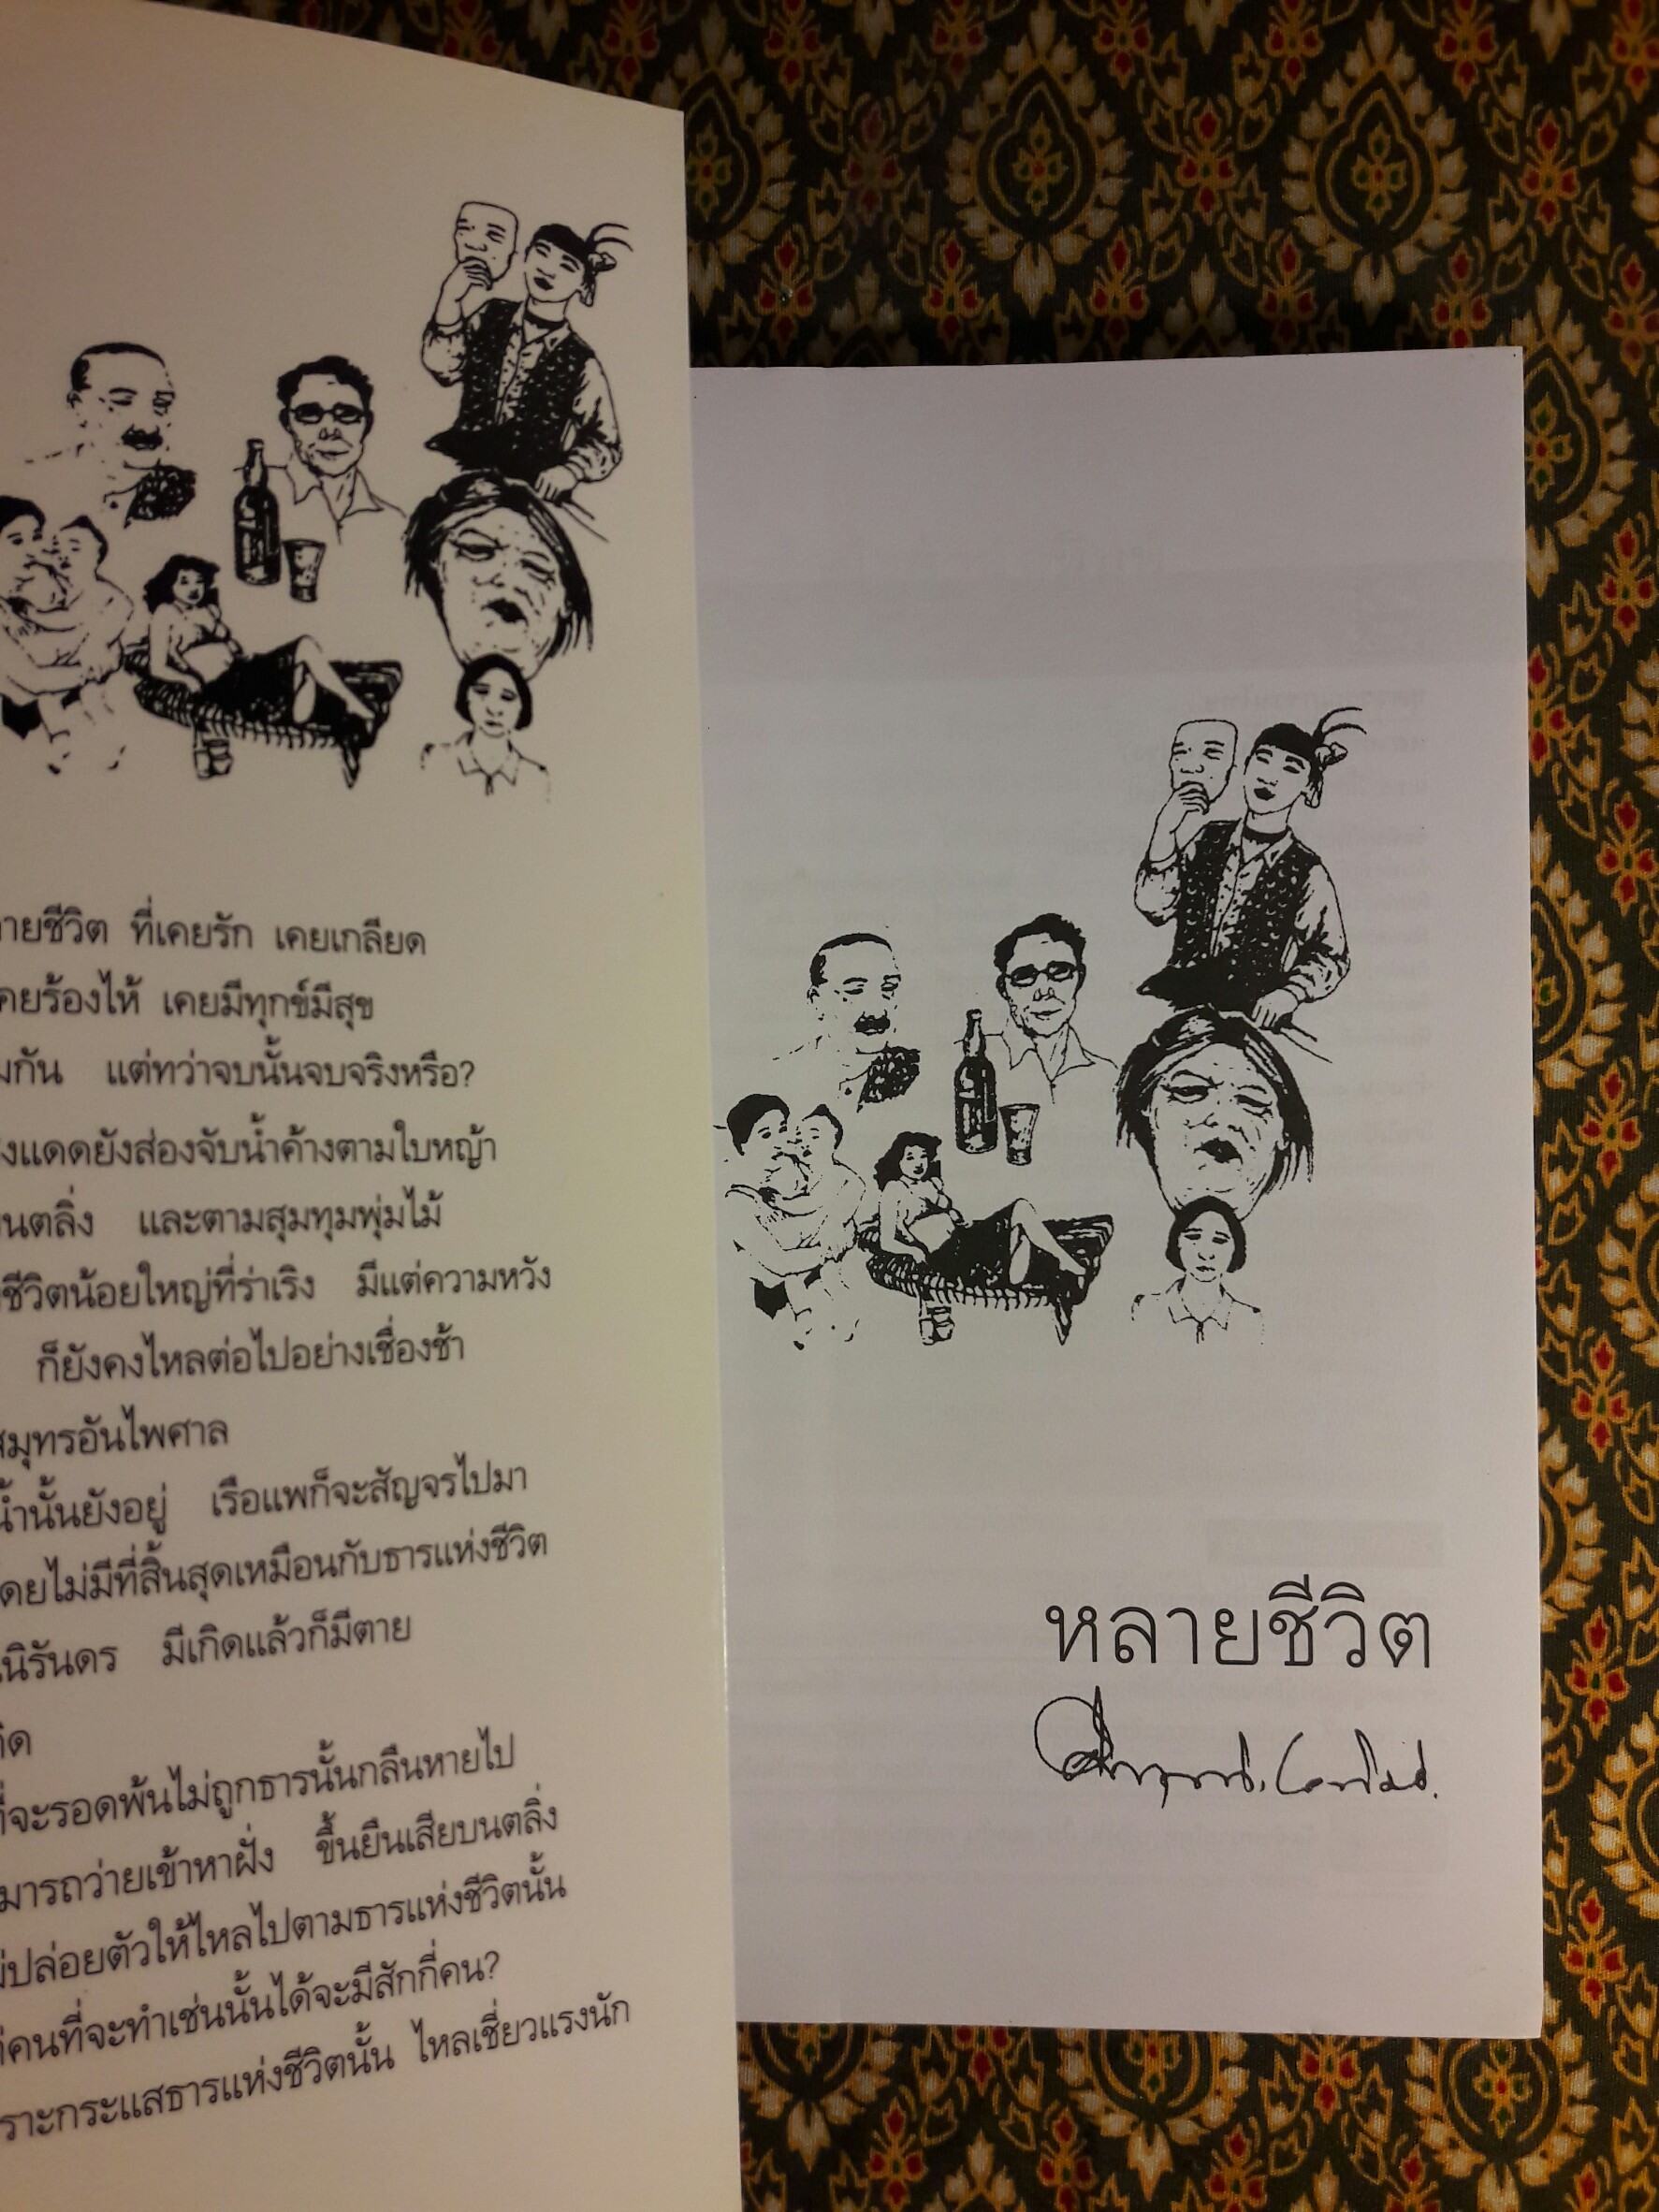 ชีวิต ที่เคยรัก เคยเกลียด
เคยร้องไห้ เคยมีทุกข์มีสุข
แต่ทว่าจบนั้นจบจริงหรือ?
แดดยังส่องจับน้ำค้างตามใบหญ้า
บนตลิ่ง และตามสุมทุมพุ่มไม้
ชีวิตน้อยใหญ่ที่ร่าเริง มีแต่ความหวัง
ก็ยังคงไหลต่อไปอย่างเชื่องช้า
สมุทรอันไพศาล
น้ำนั้นยังอยู่ เรือแพก็จะสัญจรไปมา
โดยไม่มีที่สิ้นสุดเหมือนกับธารแห่งชีวิต
นิรันดร มีเกิดแล้วก็มีตาย
ที่จะรอดพ้นไม่ถูกธารนั้นกลืนหายไป
ว่ายเข้าหาฝั่ง ขึ้นยืนเสียบนตลิ่ง
ปล่อยตัวให้ไหลไปตามธารแห่งชีวิตนั้น
คนที่จะทำเช่นนั้นได้จะมีสักกี่คน?
กระแสธารแห่งชีวิตนั้น ไหลเชี่ยวแรงนัก
หลายชีวิต